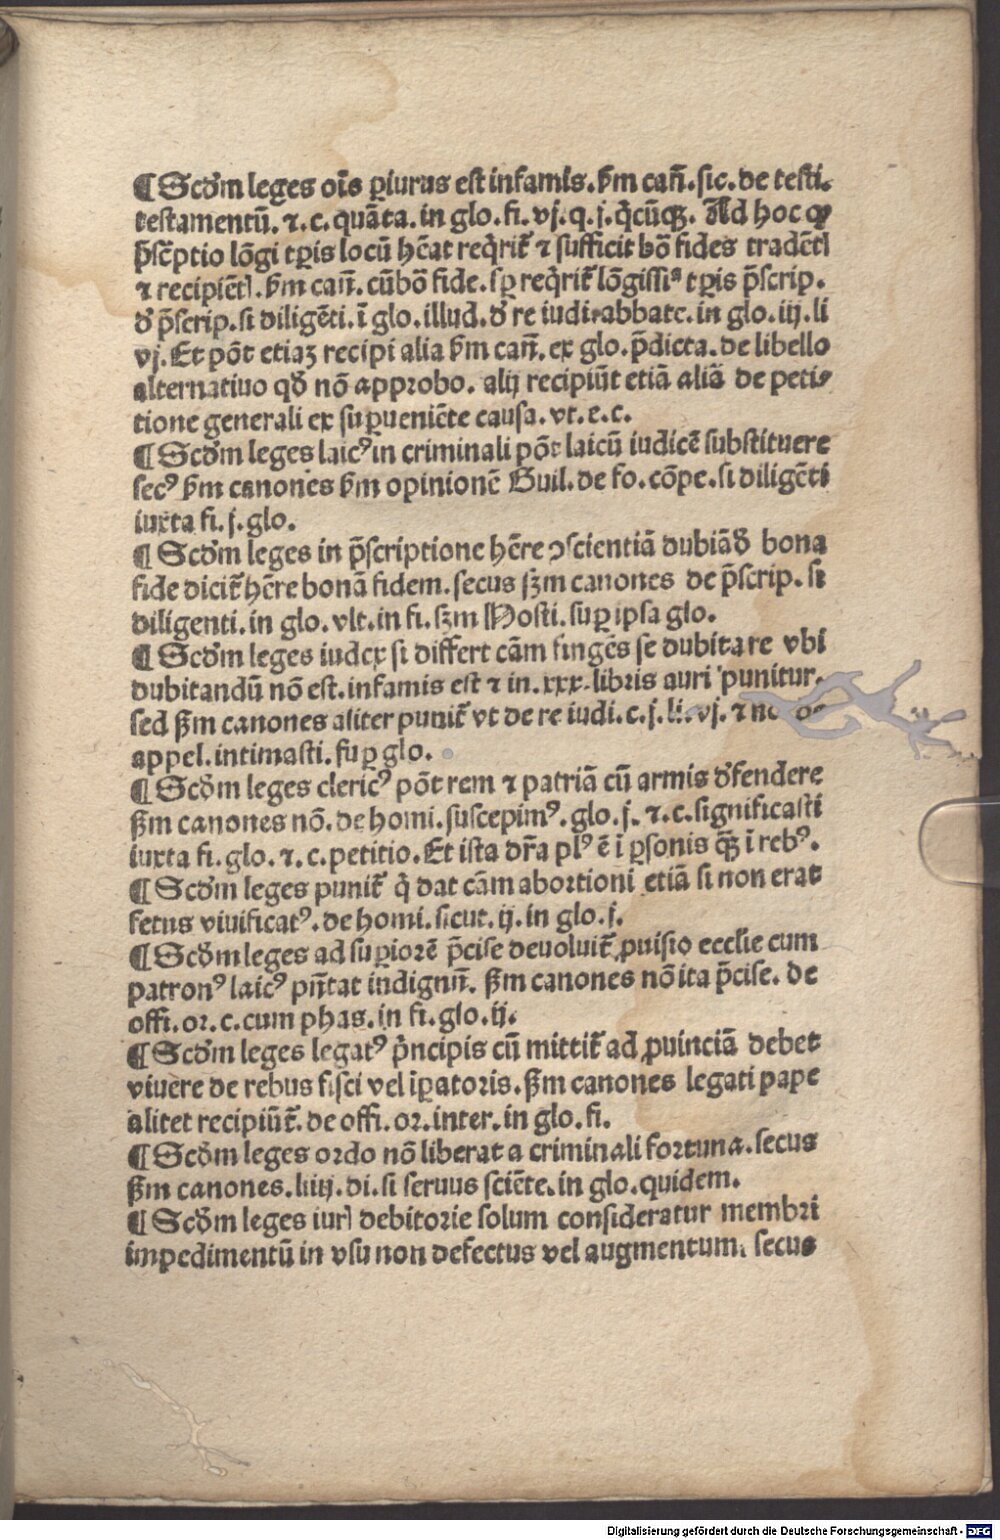 ¶ Scḋm leges oīs ꝑiurus est infamis. ẜm cañ. sic. de testi.
testamentū. ⁊.c. quāta. in glo. fi. vj. q. j. q̇cūꝗꝫ. Ad hoc ꝙ
p̄sc̄ptio lōgi tꝑis locū hēat req̇rit᷑ ⁊ sufficit bō fides tradēt
⁊ recipiēt. ẜm cañ. cū bō fide. sꝑ req̇rit᷑ lōgissiᵃ tꝑis p̄scrip.
ď p̄scrip. si diligēti. ī glo. illud. ď re iudi. abbate. in glo. iij. li
vj. Et pōt etiaꝫ recipi alia ẜm cañ. ex glo. p̄dicta. de libello
alternatiuo qḋ nō approbo. alij recipiūt etiā aliā de peti⸗
tione generali ex suꝑueniēte causa. vt. e. c.
¶ Scḋm leges laicꝰ in criminali pōt laicū iudicē substituere
secꝰ ẜm canones ẜm opinionē Guil. de fo. cōpe. si diligēti
iuxta fi. j. glo.
¶ Scḋm leges in p̄scriptione hēre ꝯscientiā dubiā ď bona
fide dicit᷑ hēre bonā fidem. secus sꝫm canones de p̄scrip. si
diligenti. in glo. vlt. in fi. sꝫm Hosti. suꝑ ipsa glo.
¶ Scḋm leges iudex si differt cām fingēs se dubitare vbi
dubitandū nō est. infamis est ⁊ in. xxx. libris auri punitur.
sed ẜm canones aliter punit᷑ vt de re iudi. c. j. li. vj. ⁊
appel. intimasti. suꝑ glo.
¶ Scḋm leges clericꝰ pōt rem ⁊ patriā cū armis ďfendere
ẜm canones nō. de homi. suscepimꝰ. glo. j. ⁊.c. significasti
iuxta fi. glo. ⁊.c. petitio. Et ista dr̄a plꝰ ē ī ꝑsonis ꝗꝫ ī rebꝰ.
¶ Scḋm leges punit᷑ q̇ dat cām abortioni etiā si non erat
fetus viuificatꝰ. de homi. sicut. ij. in glo. j.
¶ Scḋm leges ad suꝑiorē p̄cise deuoluit᷑ ꝓuisio ecclīe cum
patronꝰ laicꝰ pn̄tat indignū. ẜm canones nō ita p̄cise. de
offi. or. c. cum phas. in fi. glo. ij.
¶ Scḋm leges legatꝰ p̄ncipis cū mittit᷑ ad ꝓuinciā debet
viuere de rebus fisci vel īꝑatoris. ẜm canones legati pape
alitet recipiūt᷑. de offi. or. inter. in glo. fi.
¶ Scḋm leges ordo nō liberat a criminali fortuna. secus
ẜm canones. liiij. di. si seruus sciēte. in glo. quidem.
¶ Scḋm leges iur debitorie solum consideratur membri
impedimentū in vsu non defectus vel augmentum. secus
Digitalisierung gefördert durch die Deutsche Forschungsgemeinschaft - DFG